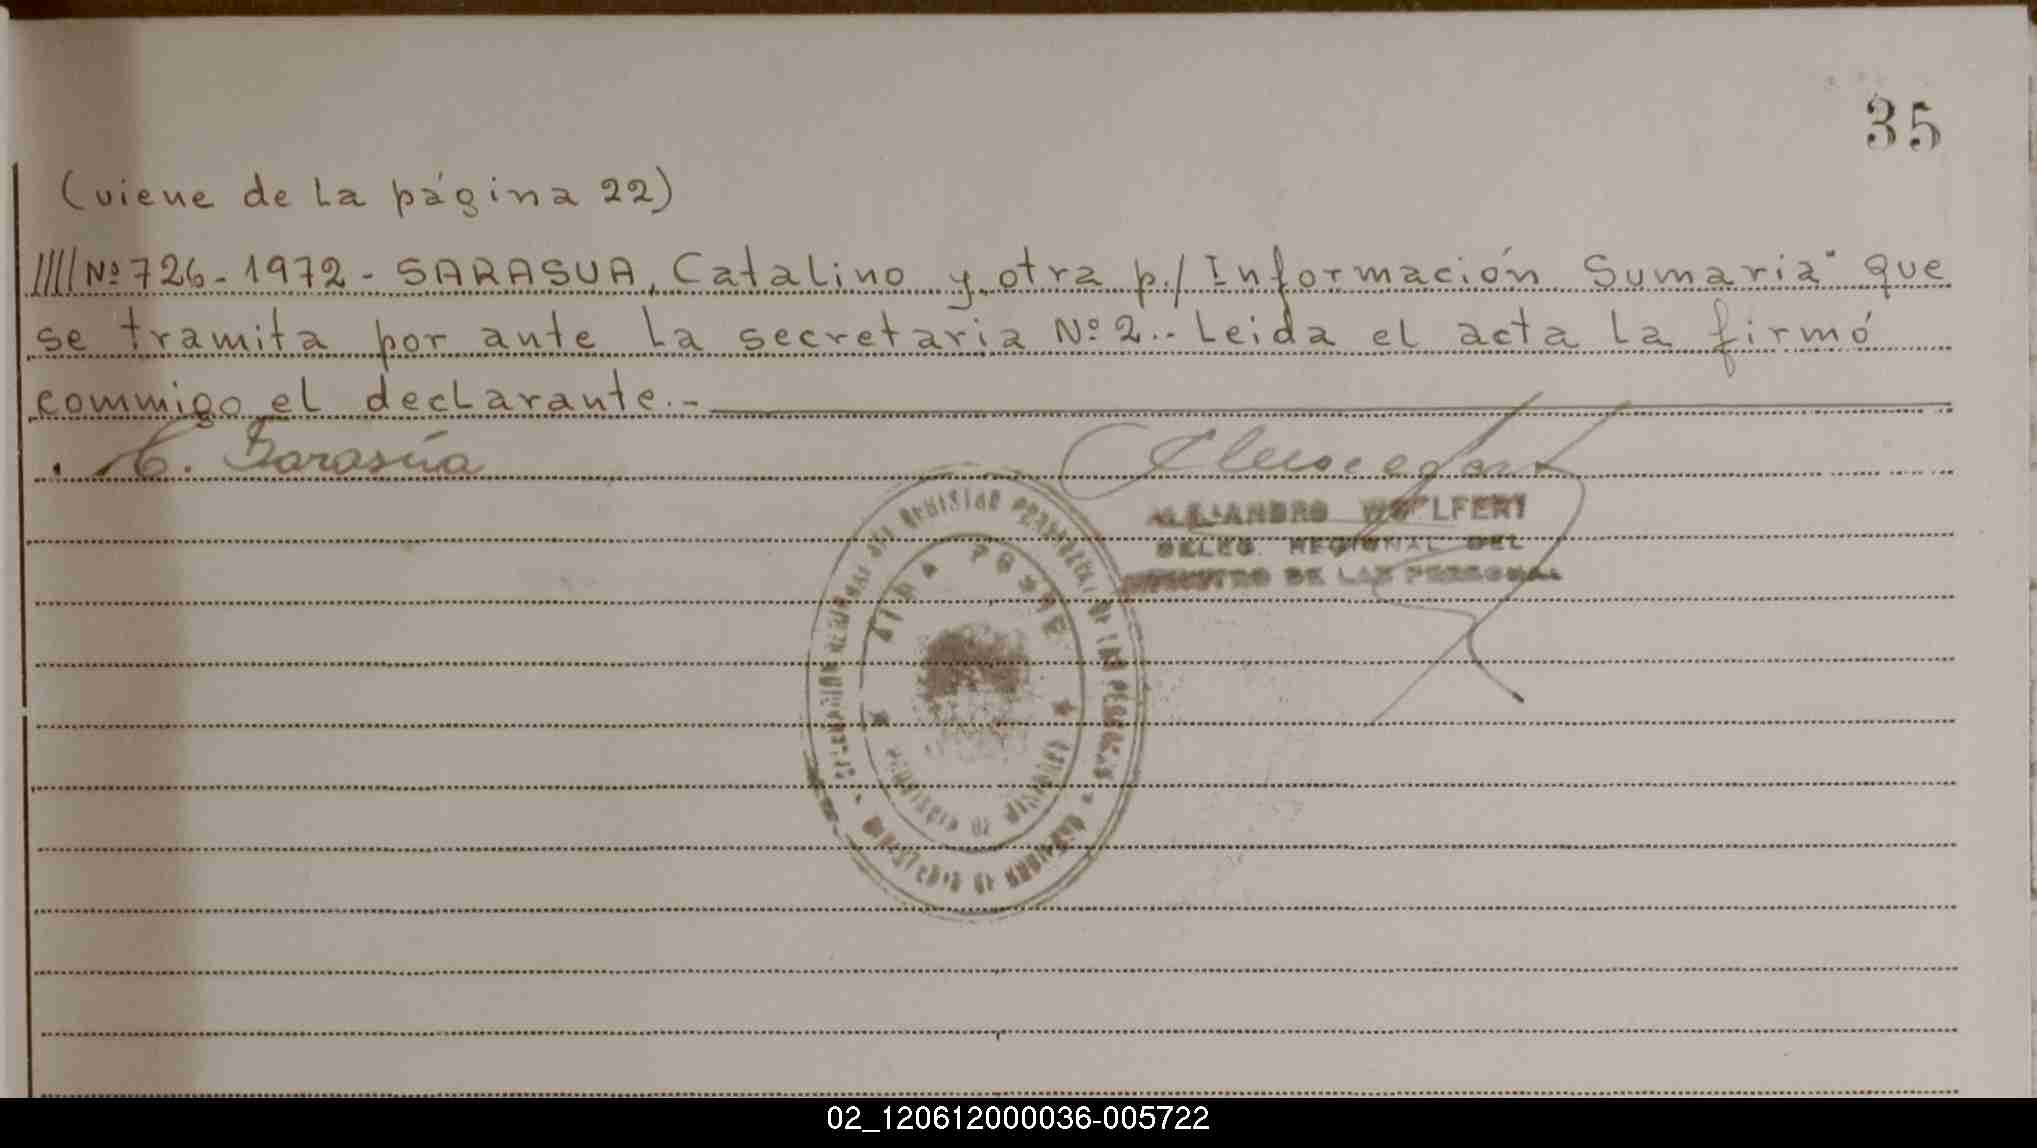 35
(viene de la página 22)
//// Nº 726 - 1972 - SARASUA, Catalino y otra p./ Información Sumaria" que
se tramita por ante la secretaria Nº 2.- Leida el acta la firmó
commigo el declarante.-
C. Sarasúa
ALEJANDRO WOLFERT
DELEG. REGIONAL DEL
REGISTRO DE LAS PERSONAS
02_120612000036-005722